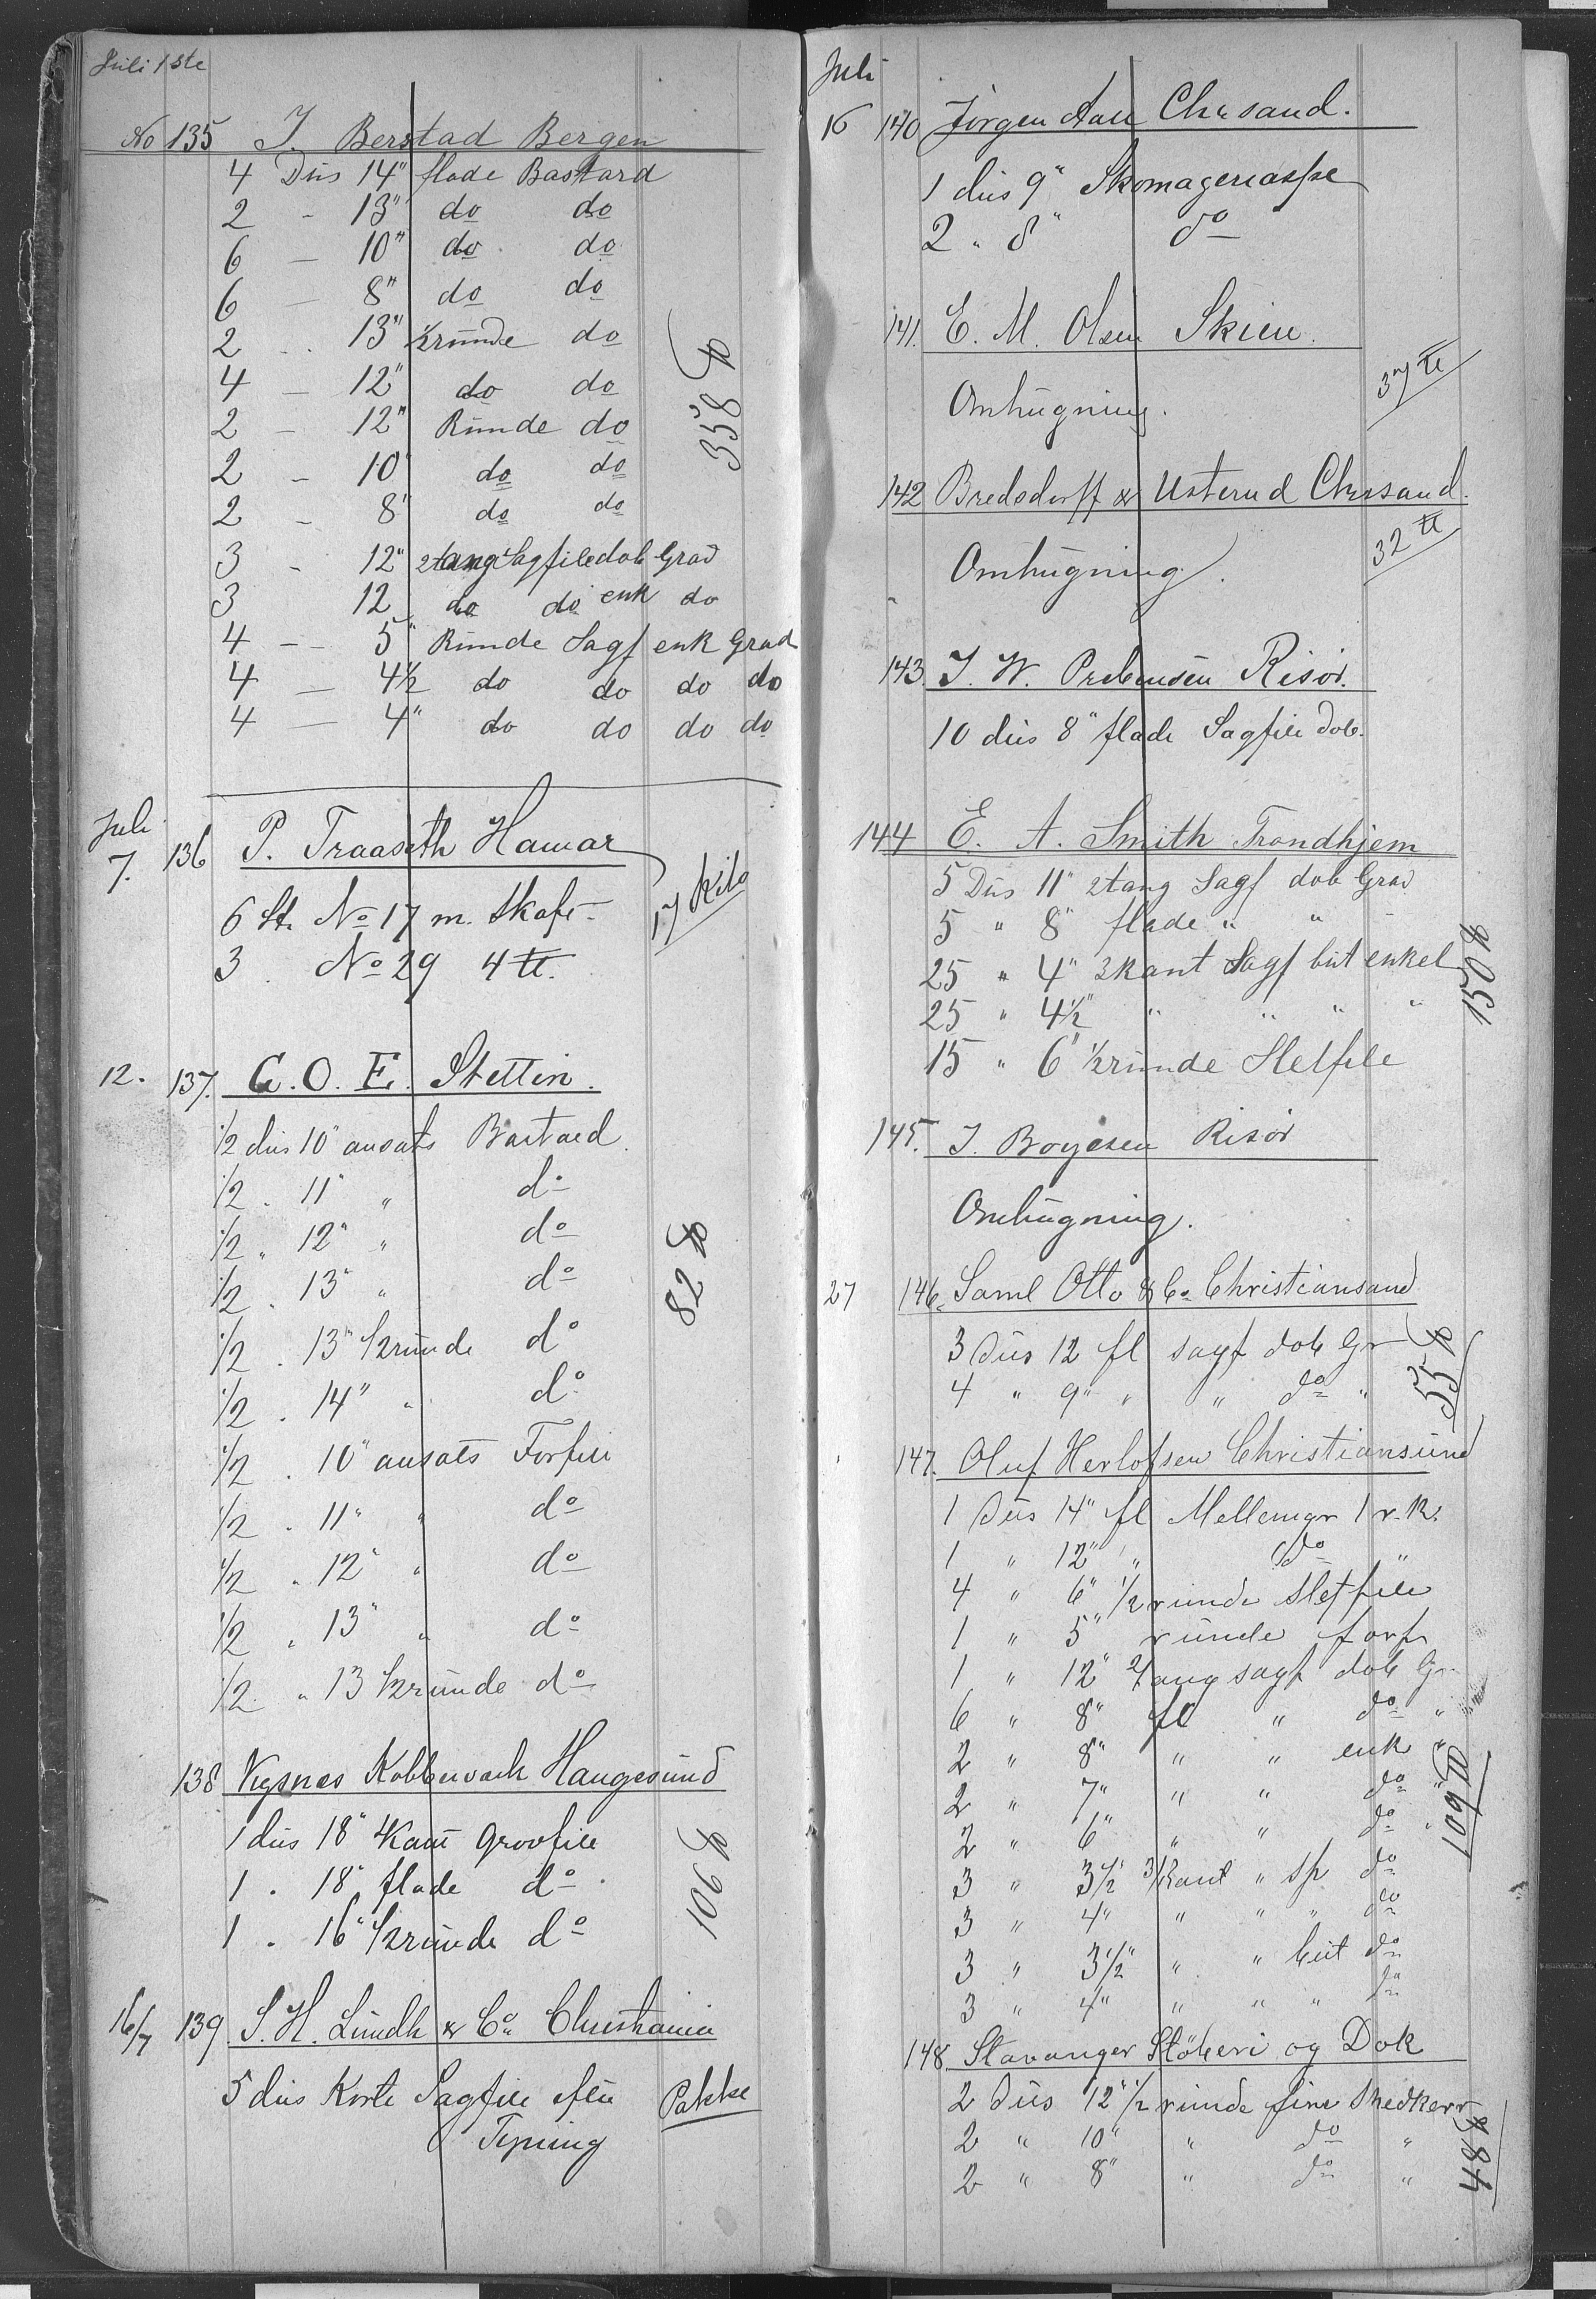 Juli 1ste
No 135 J. Berstad Bergen
4 Düs 14" flade Bastard
2 - 13" do do
6 - 10" do do
6 - 8" do do
2 - 13" ½ründe do
4 - 12" do do
2 - 12" Ründe do
2 - 10" do do
2 - 8" do do
3 - 12" 2tang Sagfile dob Grad
3 12 do do enk do
4 - 5" Ründe Sagf enk Grad
4 - 4½ do do do do
4 - 4" do do do do
358 ℔
Juli
7. 136 P. Traaseth Hamar
6 St. No 17 m. Skaft
3 No 29 4 ℔.
17 Kilo
12. 137. C. O. E. Stettin.
½ düs 10" ansats Bastard
½ " 11" " do
½ " 12" " do
½ " 13" " do
½ " 13" ½ründe do
½ " 14" " do
½ " 10" ansats Forfile
½ " 11" " do
½ " 12" " do
½ " 13" " do
½ " 13 ½ründe do
82 ℔
138 Vigsnæs Kobberværk Haugesünd
1 düs 18" 4Kant Grovfile
1 " 18" flade do
1 " 16" ½ründe do
106 ℔
16/7 139 S. H. Lündh & Co. Christiania
5 düs Korte Sagfile efter
Tegning
Pakke
Juli
16 140 Jörgen Aall Chrsand.
1 düs 9" Skomagerraspe
2 " 8" do
141. E. M. Olsen Skien.
Omhügning.
37 ℔
142 Bredsdorff & Usterud Chrsand.
Omhügning.
32 ℔
143. J. W. Prebensen Risör.
10 düs 8" flade Sagfile dob.
144 E. A. Smith Trondhjem
5 Düs 11" 2tang Sagf dob Grad
5 " 8" flade " "
25 " 4" 3kant Sagf büt enkel
25 " 4½" " " " "
15 " 6" ½ründe Sletfile
150 ℔
145. J. Boyesen Risör
Omhügning.
27 146. Saml Otto & Co. Christiansand
3 Düs 12 fl sagf dob Gr
4 " 9" " " do "
55 ℔
147. Oluf Herlofsen Christiansünd
1 Düs 14" fl Mellemgr 1 r. K.
1 " 12" " do "
4 " 6" ½ ründe Sletfile
1 " 5" ründe forf
1 " 12" 2tang sagf dob Gr
6 " 8" fl " do "
2 " 8" " " enk "
2 " 7" " " do "
2 " 6" " " do "
3 " 3½" 3/Kant " sp do
3 " 4" " " " do
3 " 3½" " " büt do
3 " 4" " " " do
109 ℔
148 Stavanger Stöberi og Dok
2 Düs 12" ½ ründe fine Snedkerr
2 " 10" " do "
2 " 8" " do "
48 ℔